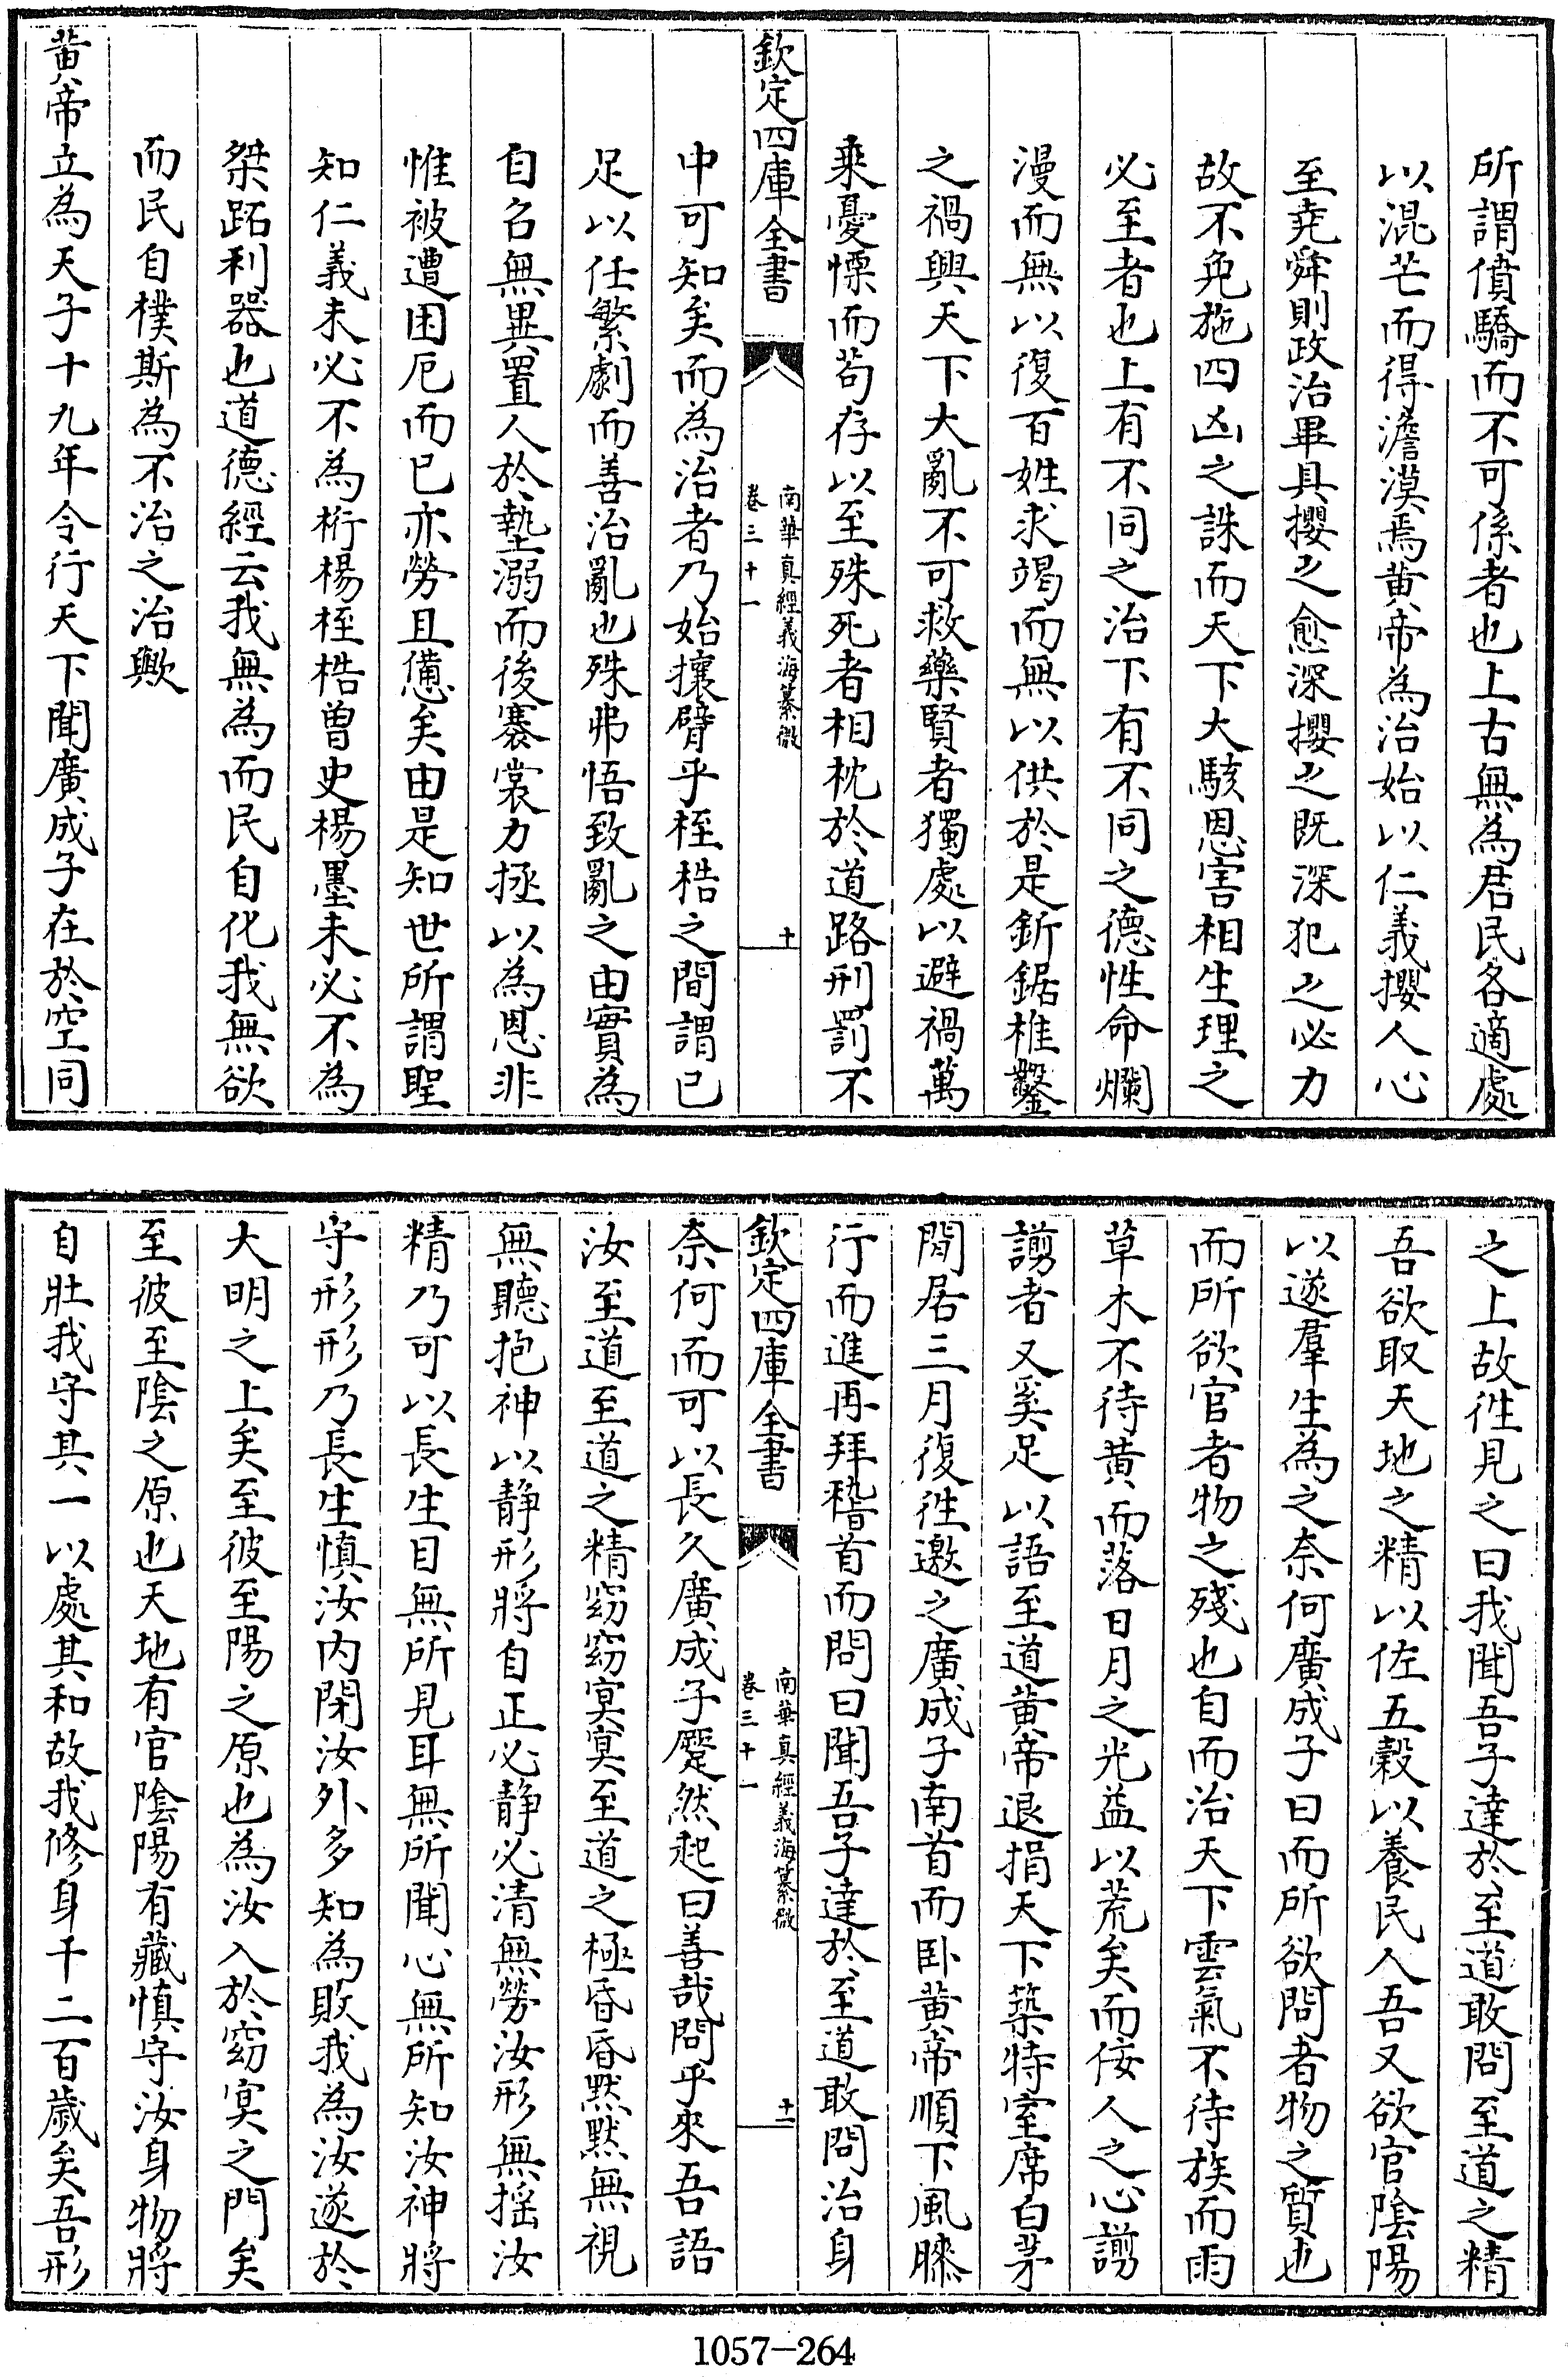 所謂僨驕而不可係者也上古無為君民各適處
以混芒而得澹漠焉黄帝為治始以仁義攖人心
至堯舜則政治畢具攖之愈深攖之既深犯之必力
故不免施四凶之誅而天下大駭恩害相生理之
必至者也上有不同之治下有不同之德性命爛
漫而無以復百姓求竭而無以供於是釿鋸椎鑿
之禍興天下大亂不可救藥賢者獨處以避禍萬
乘憂慄而苟存以至殊死者相枕於道路刑罰不
欽定四庫全書
南華真經義海纂微
卷三十一
十
中可知矣而為治者乃始攘臂乎桎梏之間謂已
足以任繁劇而善治亂也殊弗悟致亂之由實為
自名無異置人於墊溺而後褰裳力拯以為恩非
惟被遭困厄而已亦勞且憊矣由是知世所謂聖
知仁義未必不為桁楊桎梏曾史楊墨未必不為
桀跖利器也道德經云我無為而民自化我無欲
而民自樸斯為不治之治歟
黄帝立為天子十九年令行天下聞廣成子在於空同
之上故徃見之曰我聞吾子達於至道敢問至道之精
吾欲取天地之精以佐五穀以養民人吾又欲官陰陽
以遂羣生為之奈何廣成子曰而所欲問者物之質也
而所欲官者物之殘也自而治天下雲氣不待族而雨
草木不待黄而落日月之光益以荒矣而佞人之心翦
翦者又奚足以語至道黄帝退捐天下築特室席白茅
閒居三月復徃邀之廣成子南首而卧黄帝順下風膝
行而進再拜稽首而問曰聞吾子達於至道敢問治身
欽定四庫全書
南華真經義海纂微
卷三十一
十一
奈何而可以長久廣成子蹷然起曰善哉問乎來吾語
汝至道至道之精窈窈冥冥至道之極昏昏默默無視
無聽抱神以静形將自正必静必清無勞汝形無揺汝
精乃可以長生目無所見耳無所聞心無所知汝神將
守形形乃長生慎汝内閉汝外多知為敗我為汝遂於
大明之上矣至彼至陽之原也為汝入於窈冥之門矣
至彼至陰之原也天地有官陰陽有藏慎守汝身物將
自壯我守其一以處其和故我修身千二百歲矣吾形
1057-264